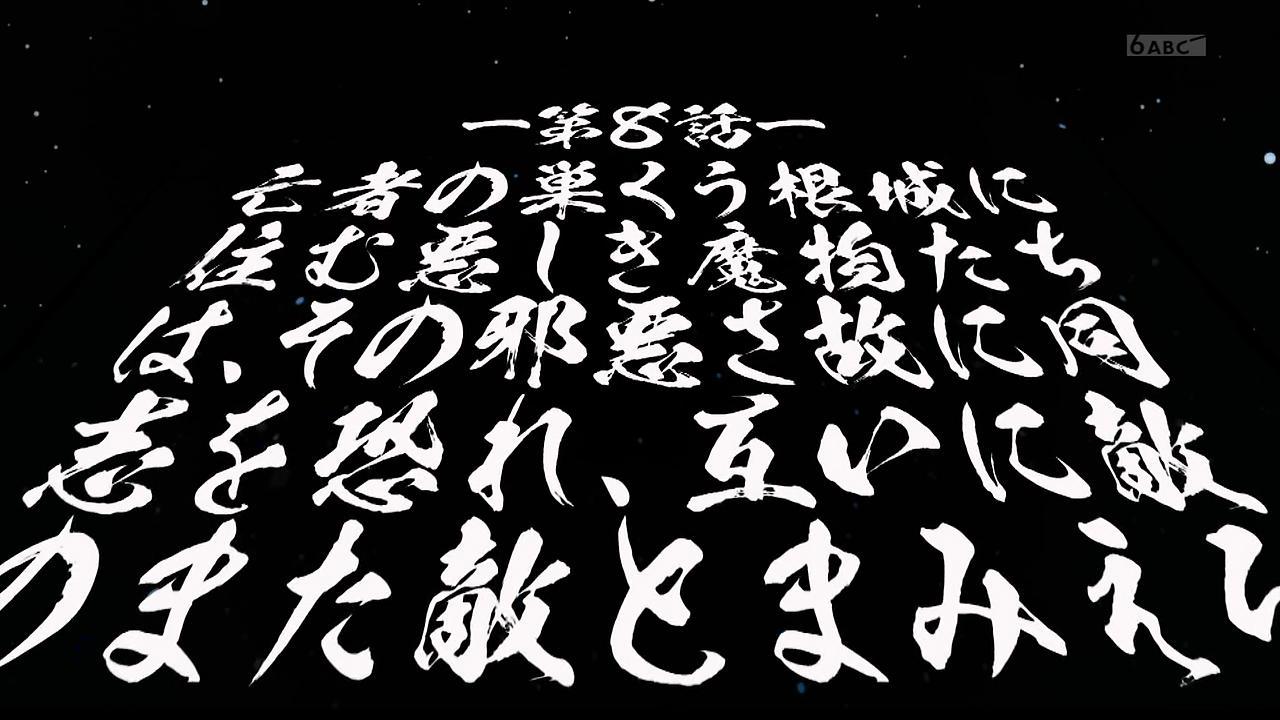 6ABC
ー第8話ー
亡者の巣くう根城に
住む悪しき魔物たち
は、その邪悪さ故に同
志を恐れ、互いに敵
のまた敵とまみえ